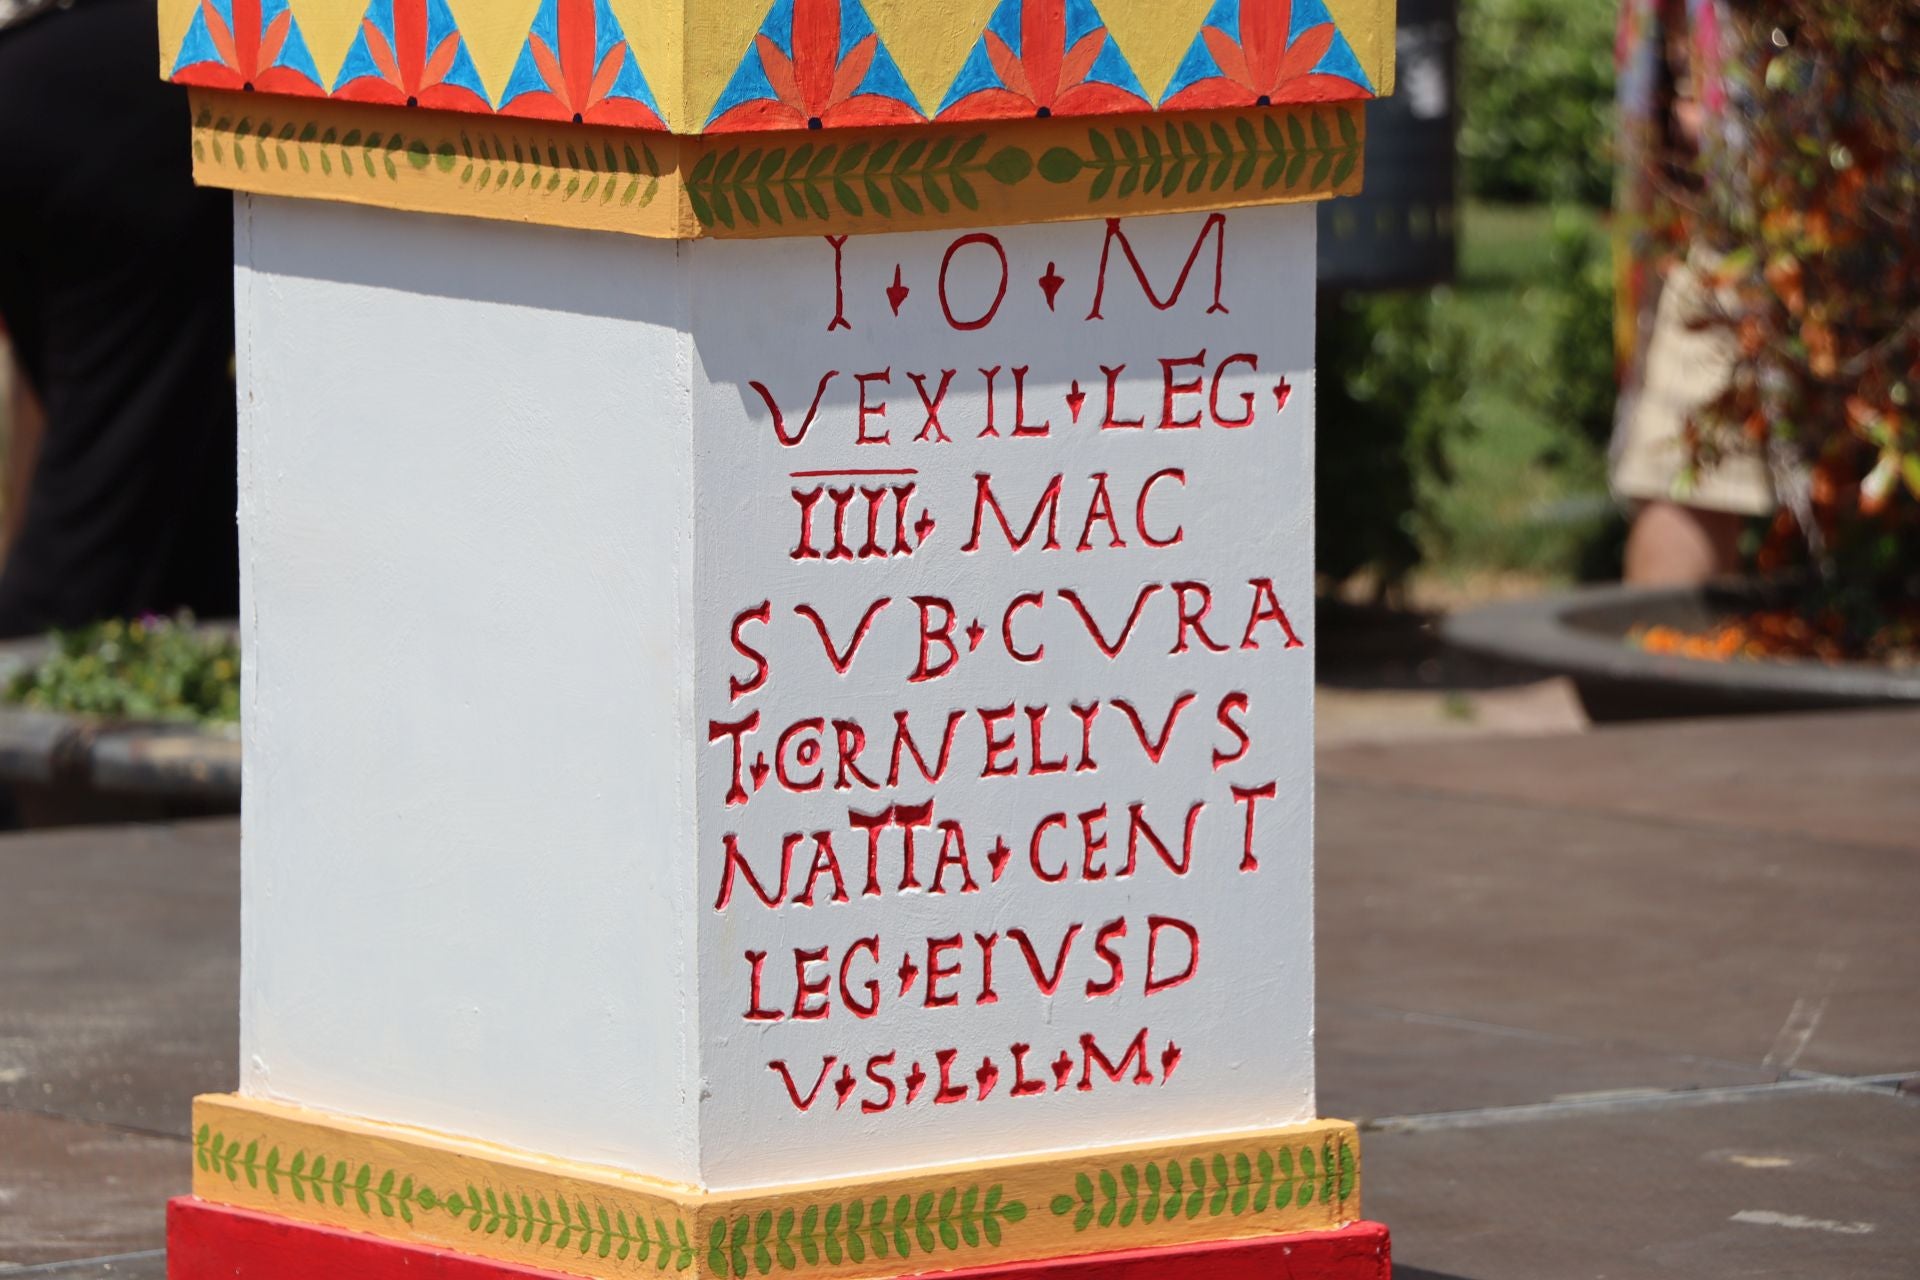 I · O · M
VEXIL · LEG ·
IIII · MAC
SVB · CVRA
T · CORNELIVS
NATTA · CENT
LEG · EIVSD
V · S · L · L · M ·